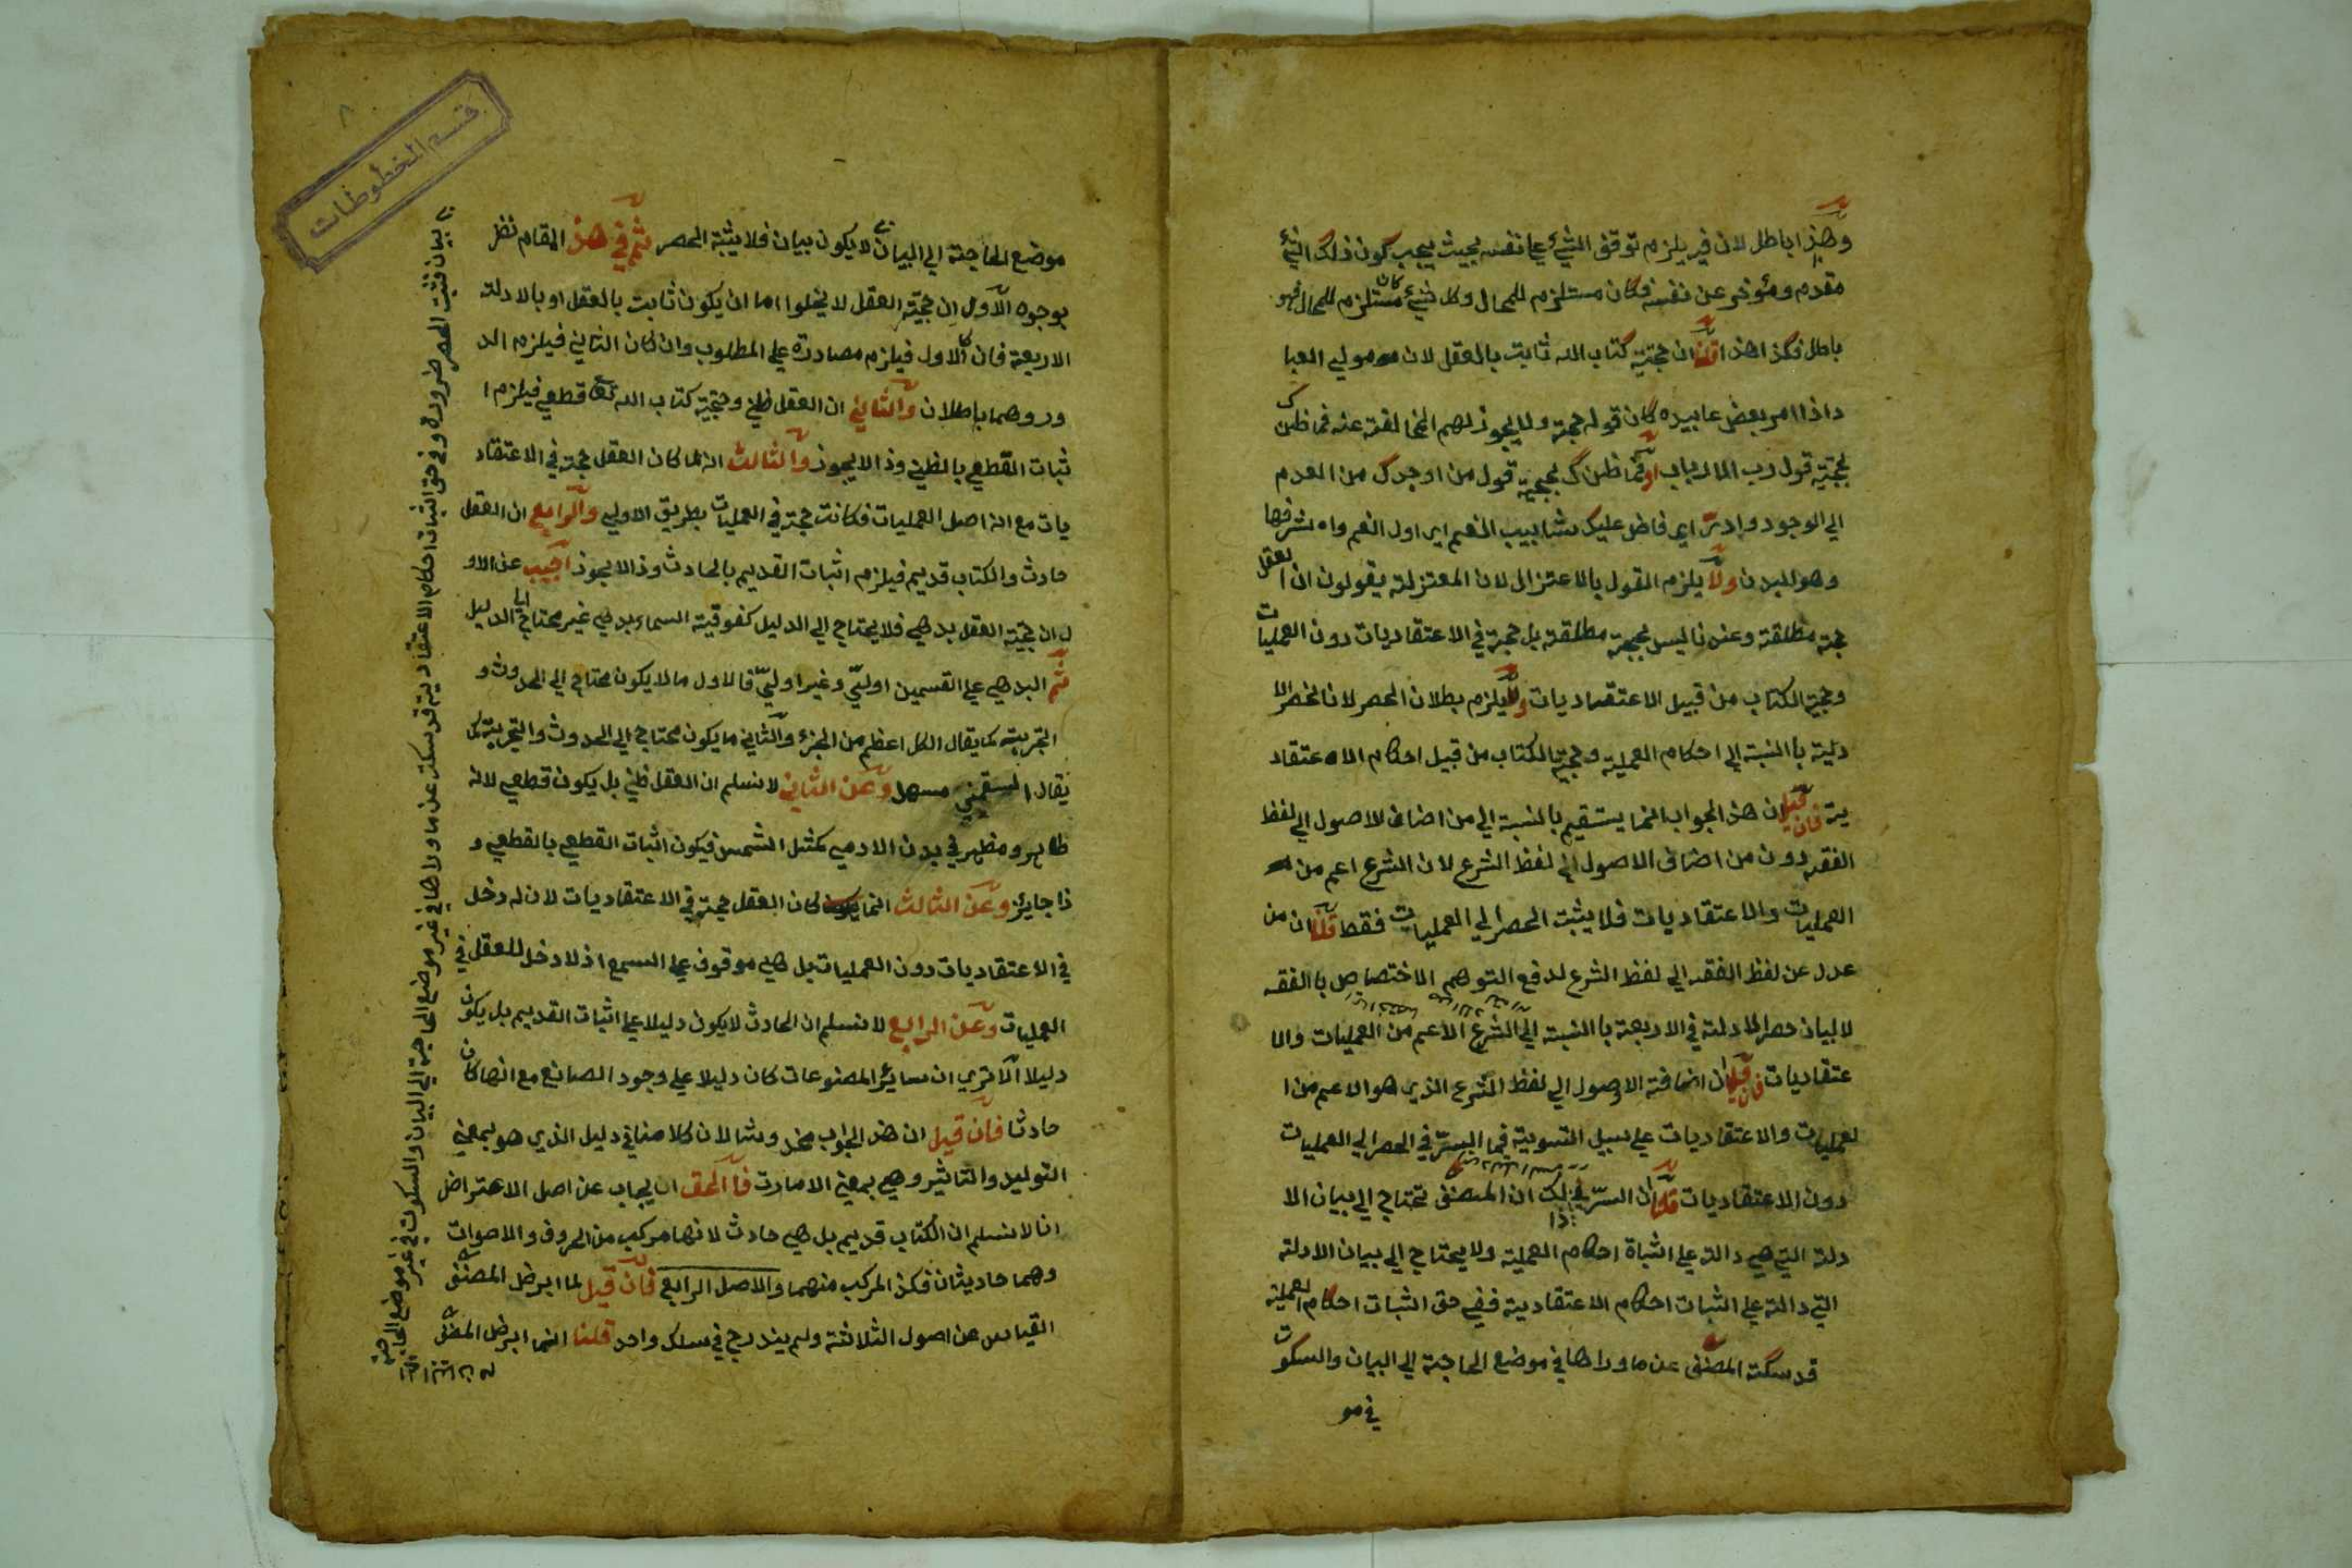 وهذا باطل لان فيه يلزم توقف الشيء علي نفسه بحيث يجب كون ذلك الشيء
مقدم ومؤخر عن نفسه فكان مستلزم للمحال وكل شيء كان مستلزم للمحال فهو
باطل فكذا هذا قلنا ان حجية كتاب الله ثابت بالعقل لان مولي العبا
داذا امر بعض عابيده كان قوله حجة ولا يجوز لهم المخالفة عنه فما ظنك
بحجية قول رب الارباب او فما ظنك بحجية قول من اوجدك من العدم
الي الوجود وادرّ اي فاض عليك شابيب النعم اي اول النعم واشرفها
وهو البدن ولا يلزم القول بالاعتزال لان المعتزلة يقولون ان العقل
حجة مطلقة وعندنا ليس بحجة مطلقة بل حجة في الاعتقاديات دون العمليات
وحجية الكتاب من قبيل الاعتقاديات ولا يلزم بطلان الحصر لان الحصر الا
دلية بالنسبة الي احكام العملية وحجية الكتاب من قبيل احكام الاعتقاد
ية فان قيل ان هذا الجواب انما يستقيم بالنسبة الي من اضاف الاصول الي لفظ
الفقه دون من اضاف الاصول الي لفظ الشرع لان الشرع اعم من
العمليات والاعتقاديات فلا يثبت الحصر الي العمليات فقط قلنا ان من
عدل عن لفظ الفقه الي لفظ الشرع لدفع التوهم الاختصاص بالفقه
لا لبيان حصر الادلة في الاربعة بالنسبة الي الشرع الاعم من العمليات والا
عتقاديات فان قيل ان اضافة الاصول الي لفظ الشرع الذي هو الاعم من ا
لعمليات والاعتقاديات علي سبيل التسوية فما السرّ في الحصر الي العمليات
دون الاعتقاديات قلنا ان السرّ في ذلك ان المصنف تحتاج الي بيان الا
دلة التي هي دالة علي اثباة احكام العملية ولا يحتاج الي بيان الادلة
التي دالة علي اثبات احكام الاعتقادية ففي حق اثبات احكام العملية
قد سكت المصنف عن ما وراها في موضع الحاجة الي البيان والسكوت
في مو
قسم المخطوطات
٨
موضع الحاجة الي البيان لا يكون بيان فلا يثبت الحصر ثم في هذا المقام نظر
بوجوه الاول ان حجية العقل لا يخلوا اما ان يكون ثابت بالعقل او بالادلة
الاربعة فان كا الاول فيلزم مصادرة علي المطلوب وان كان الثاني فيلزم الد
ور وهما باطلان والثاني ان العقل ظني وحجية كتاب الله تع قطعي فيلزم ا
ثبات القطعي بالظني وذا لا يجوز والثالث انه لما كان العقل حجة في الاعتقاد
يات مع انه اصل العمليات فكانت حجة في العمليات بطريق الاولي والرابع ان العقل
حادث والكتاب قديم فيلزم اثبات القديم بالحادث وذا لا يجوز اجيب عن الاو
ل ان حجية العقل بدهي فلا يحتاج الي الدليل كفوقية السماء بدهي غير محتاج الي الدليل
ثم البدهي علي القسمين اوليّ وغير اوليّ فالاول ما لا يكون محتاج الي الحدوث و
التجربة كما يقال الكل اعظم من الجزء والثاني ما يكون محتاج الي الحدوث والتجربة كما
يقال السقمني مسهل وعن الثاني لا نسلم ان العقل ظني بل يكون قطعي لانه
ظاهر ومظهر في بدن الادمي كمثل الشمس فيكون اثبات القطعي بالقطعي و
ذا جايز وعن الثالث انما كان العقل حجة في الاعتقاديات لان له دخل
في الاعتقاديات دون العمليات بل هي موقوف علي السمع اذ لا دخل للعقل في
العمليات وعن الرابع لا نسلم ان الحادث لا يكون دليلا علي اثبات القديم بل يكون
دليلا الا تري ان سائر المصنوعات كان دليلا علي وجود الصانع مع انها كان
حادثا فان قيل ان هذا الجواب مخدوشا لان كلامنا في دليل الذي هو بمعني
التوليد والتاثير وهي بمعني الامارت فالحق ان يجاب عن اصل الاعتراض
انا لا نسلم ان الكتاب قديم بل هي حادث لانها مركب من الحروف والاصوات
وهما حاديثان فكذا المركب منهما والاصل الرابع فان قيل لما ابرض المصنف
القياس عن اصول الثلاثة ولم يندرج في سلك واحد قلنا انما ابرض المصنف
بيان فثبت الحصر ضرورة وفي حق اثبات احكام الاعتقادية قد سكت عن ما وراها في غير موضع الحاجة الي البيان والسكوت في غير موضع الحاجة